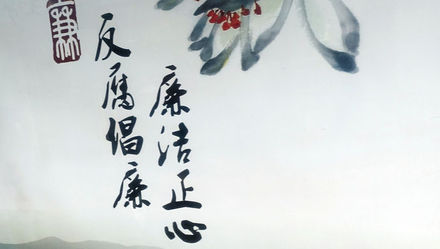 廉洁正心
反腐倡廉